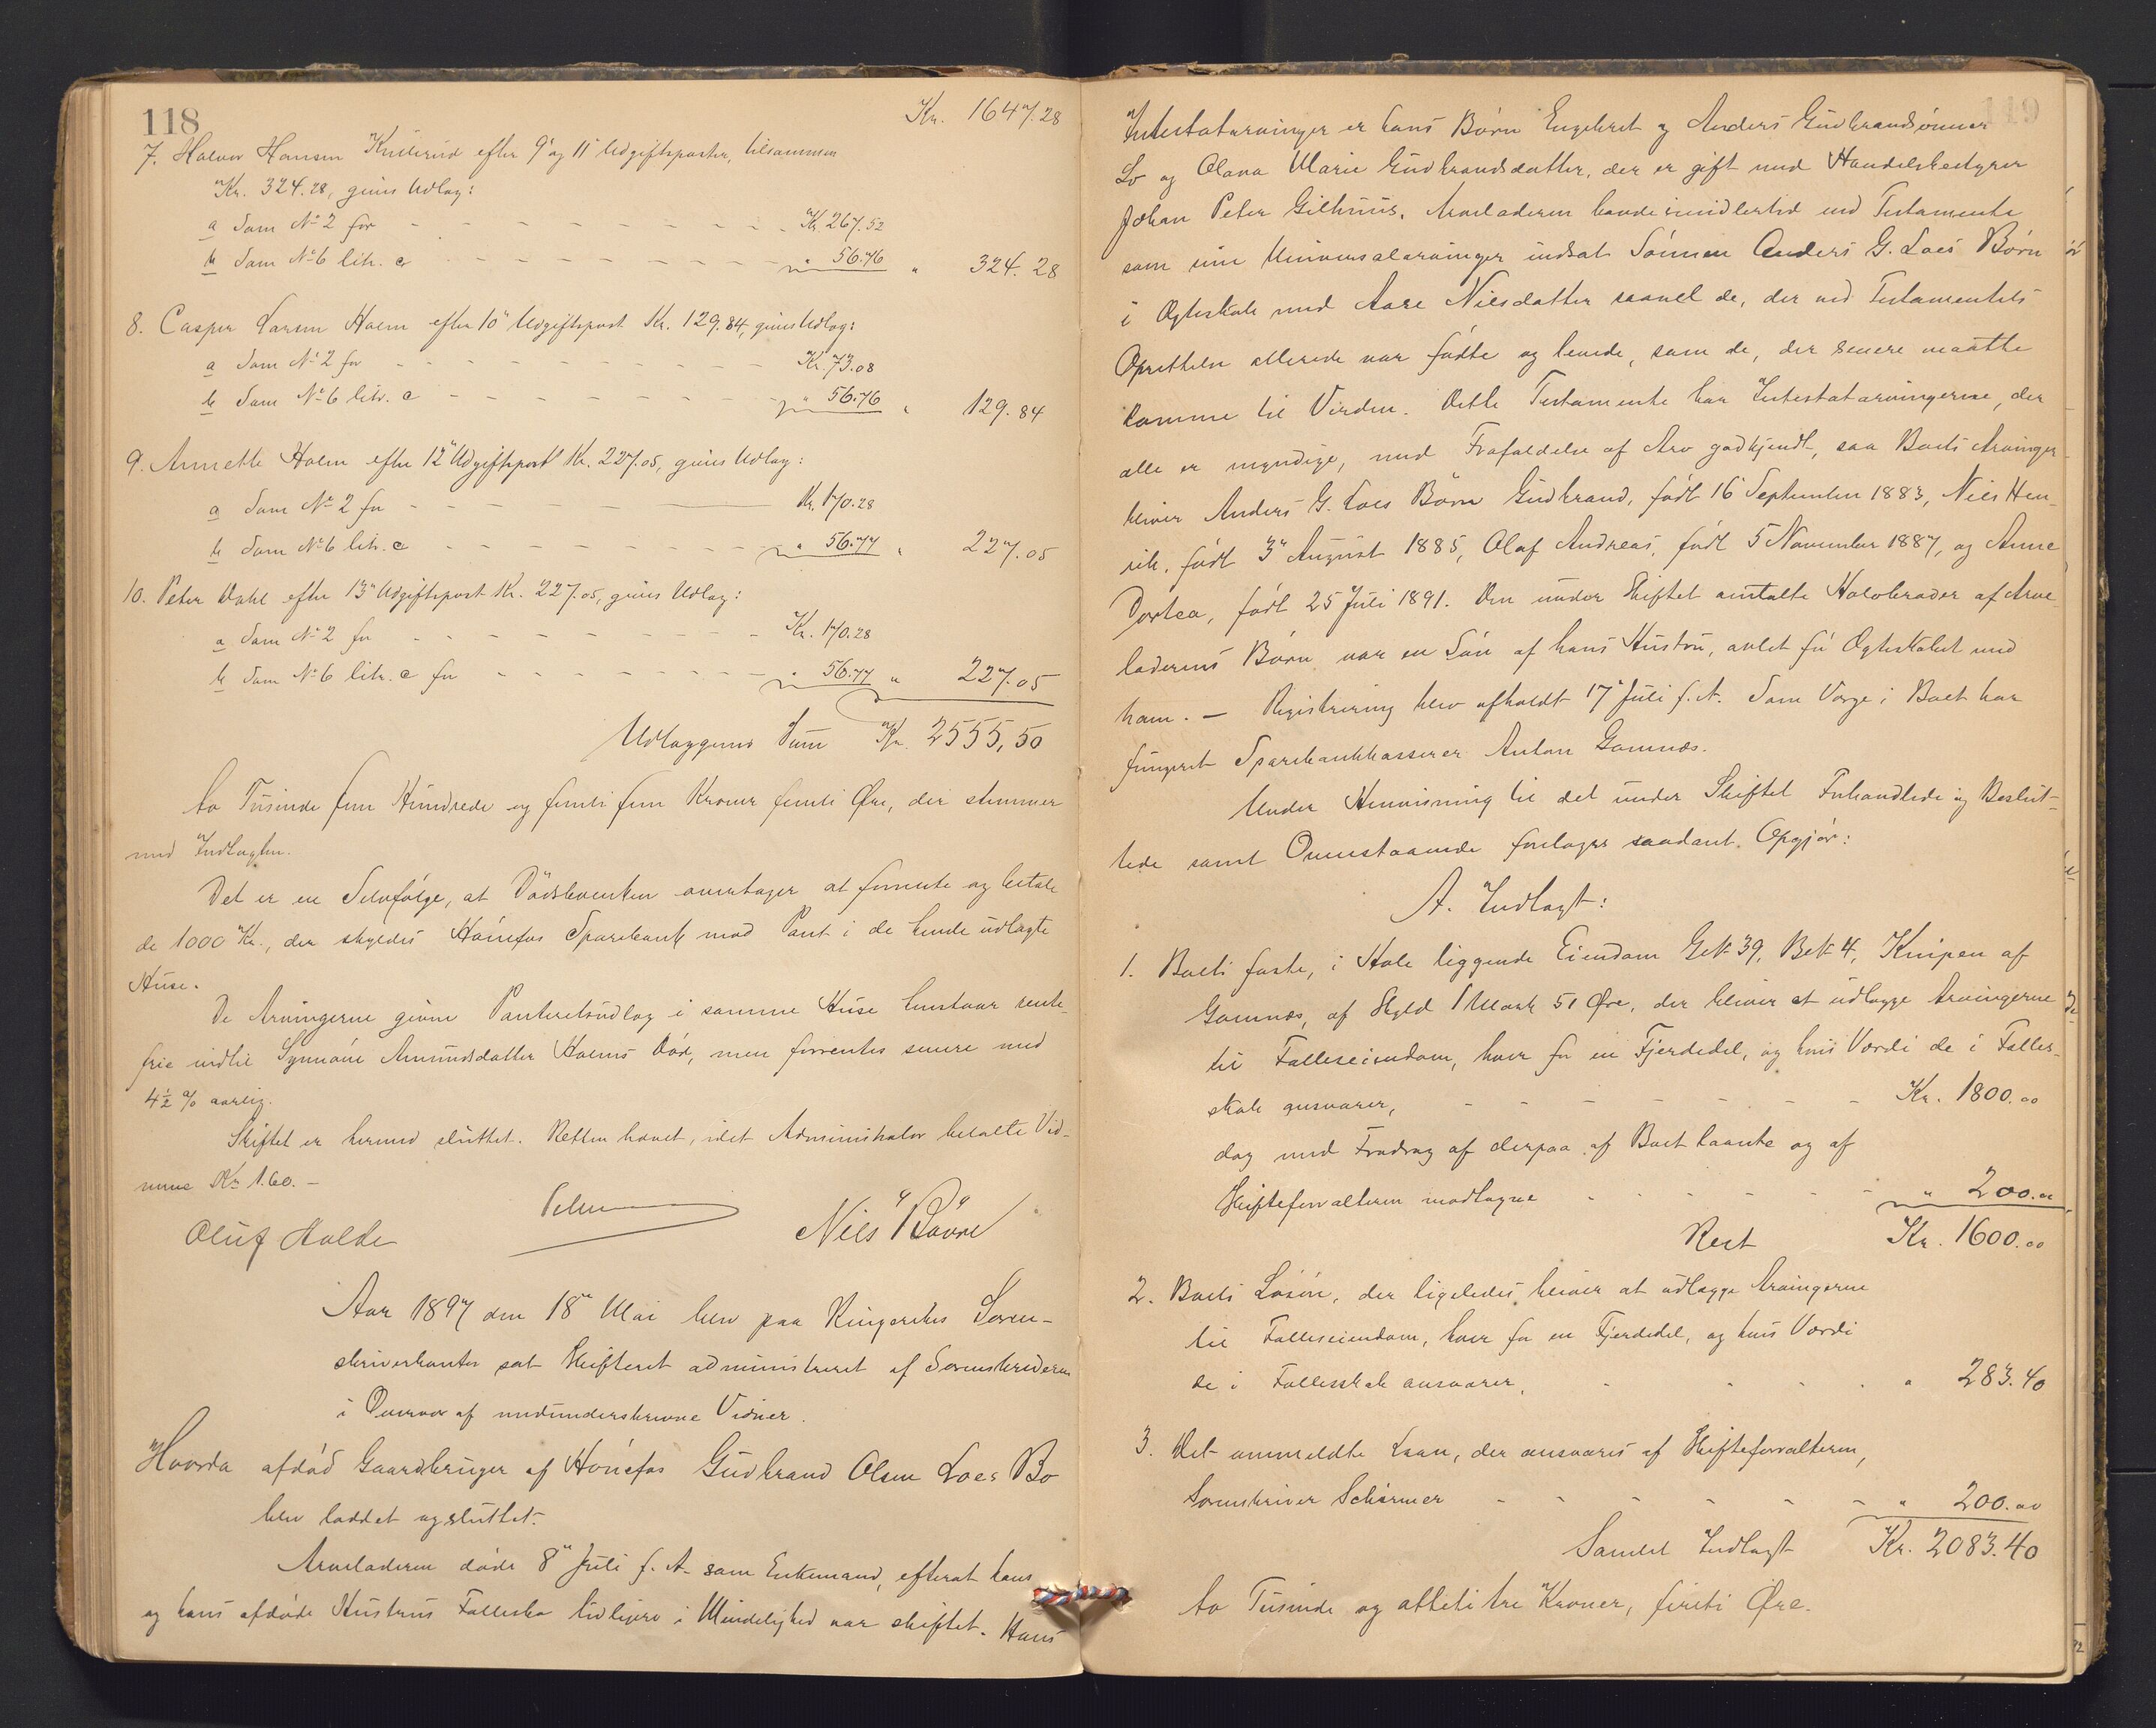 118
Kr. 1647.28
7. Halvor Hansen Kullerud efter 9 og 11 Udgiftsposter, tilsammen
Kr. 324.28, gives Udlæg:
a Sum No 2 for - - - Kr. 267.52
b Sum No 6 litr. c - - - " 56.76 " 324.28
8. Casper Larsen Holm efter 10" Udgiftspost Kr. 129.84, gives Udlæg:
a Sum No 2 for - - - Kr. 73.08
b Sum No 6 litr. c - - - " 56.76 " 129.84
9. Annette Holm efter 12" Udgiftspost Kr. 227.05, gives Udlæg:
a Sum No 2 for - - - Kr. 170.28
b Sum No 6 litr. c - - - " 56.77 " 227.05
10. Peter Dahl efter 13" Udgiftspost Kr. 227.05, gives Udlæg:
a Sum No 2 for - - - Kr. 170.28
b Sum No 6 litr. c for - - - " 56.77 " 227.05
Udlæggenes Sum Kr. 2555,50
to Tusinde fem Hundrede og femti fem Kroner femti Øre, der stemmer
med Indtægten.
Det er en Selvfølge, at Dødsboenken overtager at forrente og betale
de 1000 Kr., der skyldes Hønefos Sparebank mod Pant i de hende udlagte
Huse.
De Arvingerne givne Panteretsudlæg i samme Huse henstaar rente-
frie indtil Synnøve Amundsdatter Holms Død, men forrentes senere med
4½ % aarlig.
Skiftet er hermed sluttet. Retten hævet, idet Administrator betalte Vid-
nerne Kr 1.60. -
Oluf Holte
Niels Bovre
Aar 1897 den 18" Mai blev paa Ringerikes Soren-
skriverkontor sat Skifteret administreret af Sorenskriveren
i Overvær af medunderskrevne Vidner.
Hvorda afdød Gaardbruger af Hønefos Gudbrand Olsen Loes Bo
blev loddet og sluttet.
Arveladeren døde 8" Juli f. A. som Enkemand, efterat hans
og hans afdøde Hustrus Fællesbo tidligere i Mindelighed var skiftet. Hans
119
Intestatarvinger er hans Børn Engebret og Anders Gudbrandsønner
Lo og Olava Marie Gudbrandsdatter, der er gift med Handelsbestyrer
Johan Peter Gilhuus. Arveladeren havde imidlertid ved Testamente
som sine Universalarvinger indsat Sønnen Anders G. Loes Børn
i Ægteskab med Aase Nilsdatter saavel de, der ved Testamentets
Oprettelse allerede var fødte og levede, som de, der senere maatte
komme til Verden. Dette Testamente har Intestatarvingerne, der
alle er myndige, med Frafaldelse af Arv godkjendt, saa Boets Arvinger
bliver Anders G. Loes Børn Gudbrand, født 16 September 1883, Niels Hen-
rik, født 3" August 1885, Olaf Andreas, født 5 November 1887, og Anne
Dortea, født 25 Juli 1891. Den under Skiftet omtalte Halvbroder af Arve-
laderens Børn var en Søn af hans Hustru, avlet før Ægteskabet med
ham. — Registrering blev afholdt 17" Juli f. A. Som Værge i Boet har
fungeret Sparebankkasserer Anton Gomnæs.
Under Henvisning til det under Skiftet Forhandlede og Beslut-
tede samt Ovenstaaende foretages saadant Opgjør:
A. Indtægt:
1. Boets faste, i Hole liggende Eiendom G.No 39, B.No 4, Knipen af
Gomnæs, af Skyld 1 Mark 51 Øre, der bliver at udlægge Arvingerne
til Fælleseiendom, hver for en Fjerdedel, og hvis Værdi de i Fælles-
skab ansvarer, - - - Kr. 1800.00
dog med Fradrag af derpaa af Boet laante og af
Skifteforvalteren modtagne - - - " 200.00
Rest Kr. 1600.00
2. Boets Løsøre, der ligeledes bliver at udlægge Arvingerne
til Fælleseiendom, hver for en Fjerdedel, og hvis Værdi
de i Fællesskab ansvarer, - - - " 283.40
3. Det anmeldte Laan, der ansvares af Skifteforvalteren,
Sorenskriver Schirmer - - - " 200.00
Samlet Indtægt Kr. 2083.40
to Tusinde og otteti tre Kroner, firti Øre.